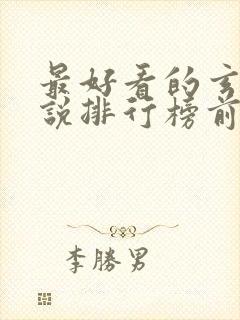 最好看的玄
說排行榜前
李勝男